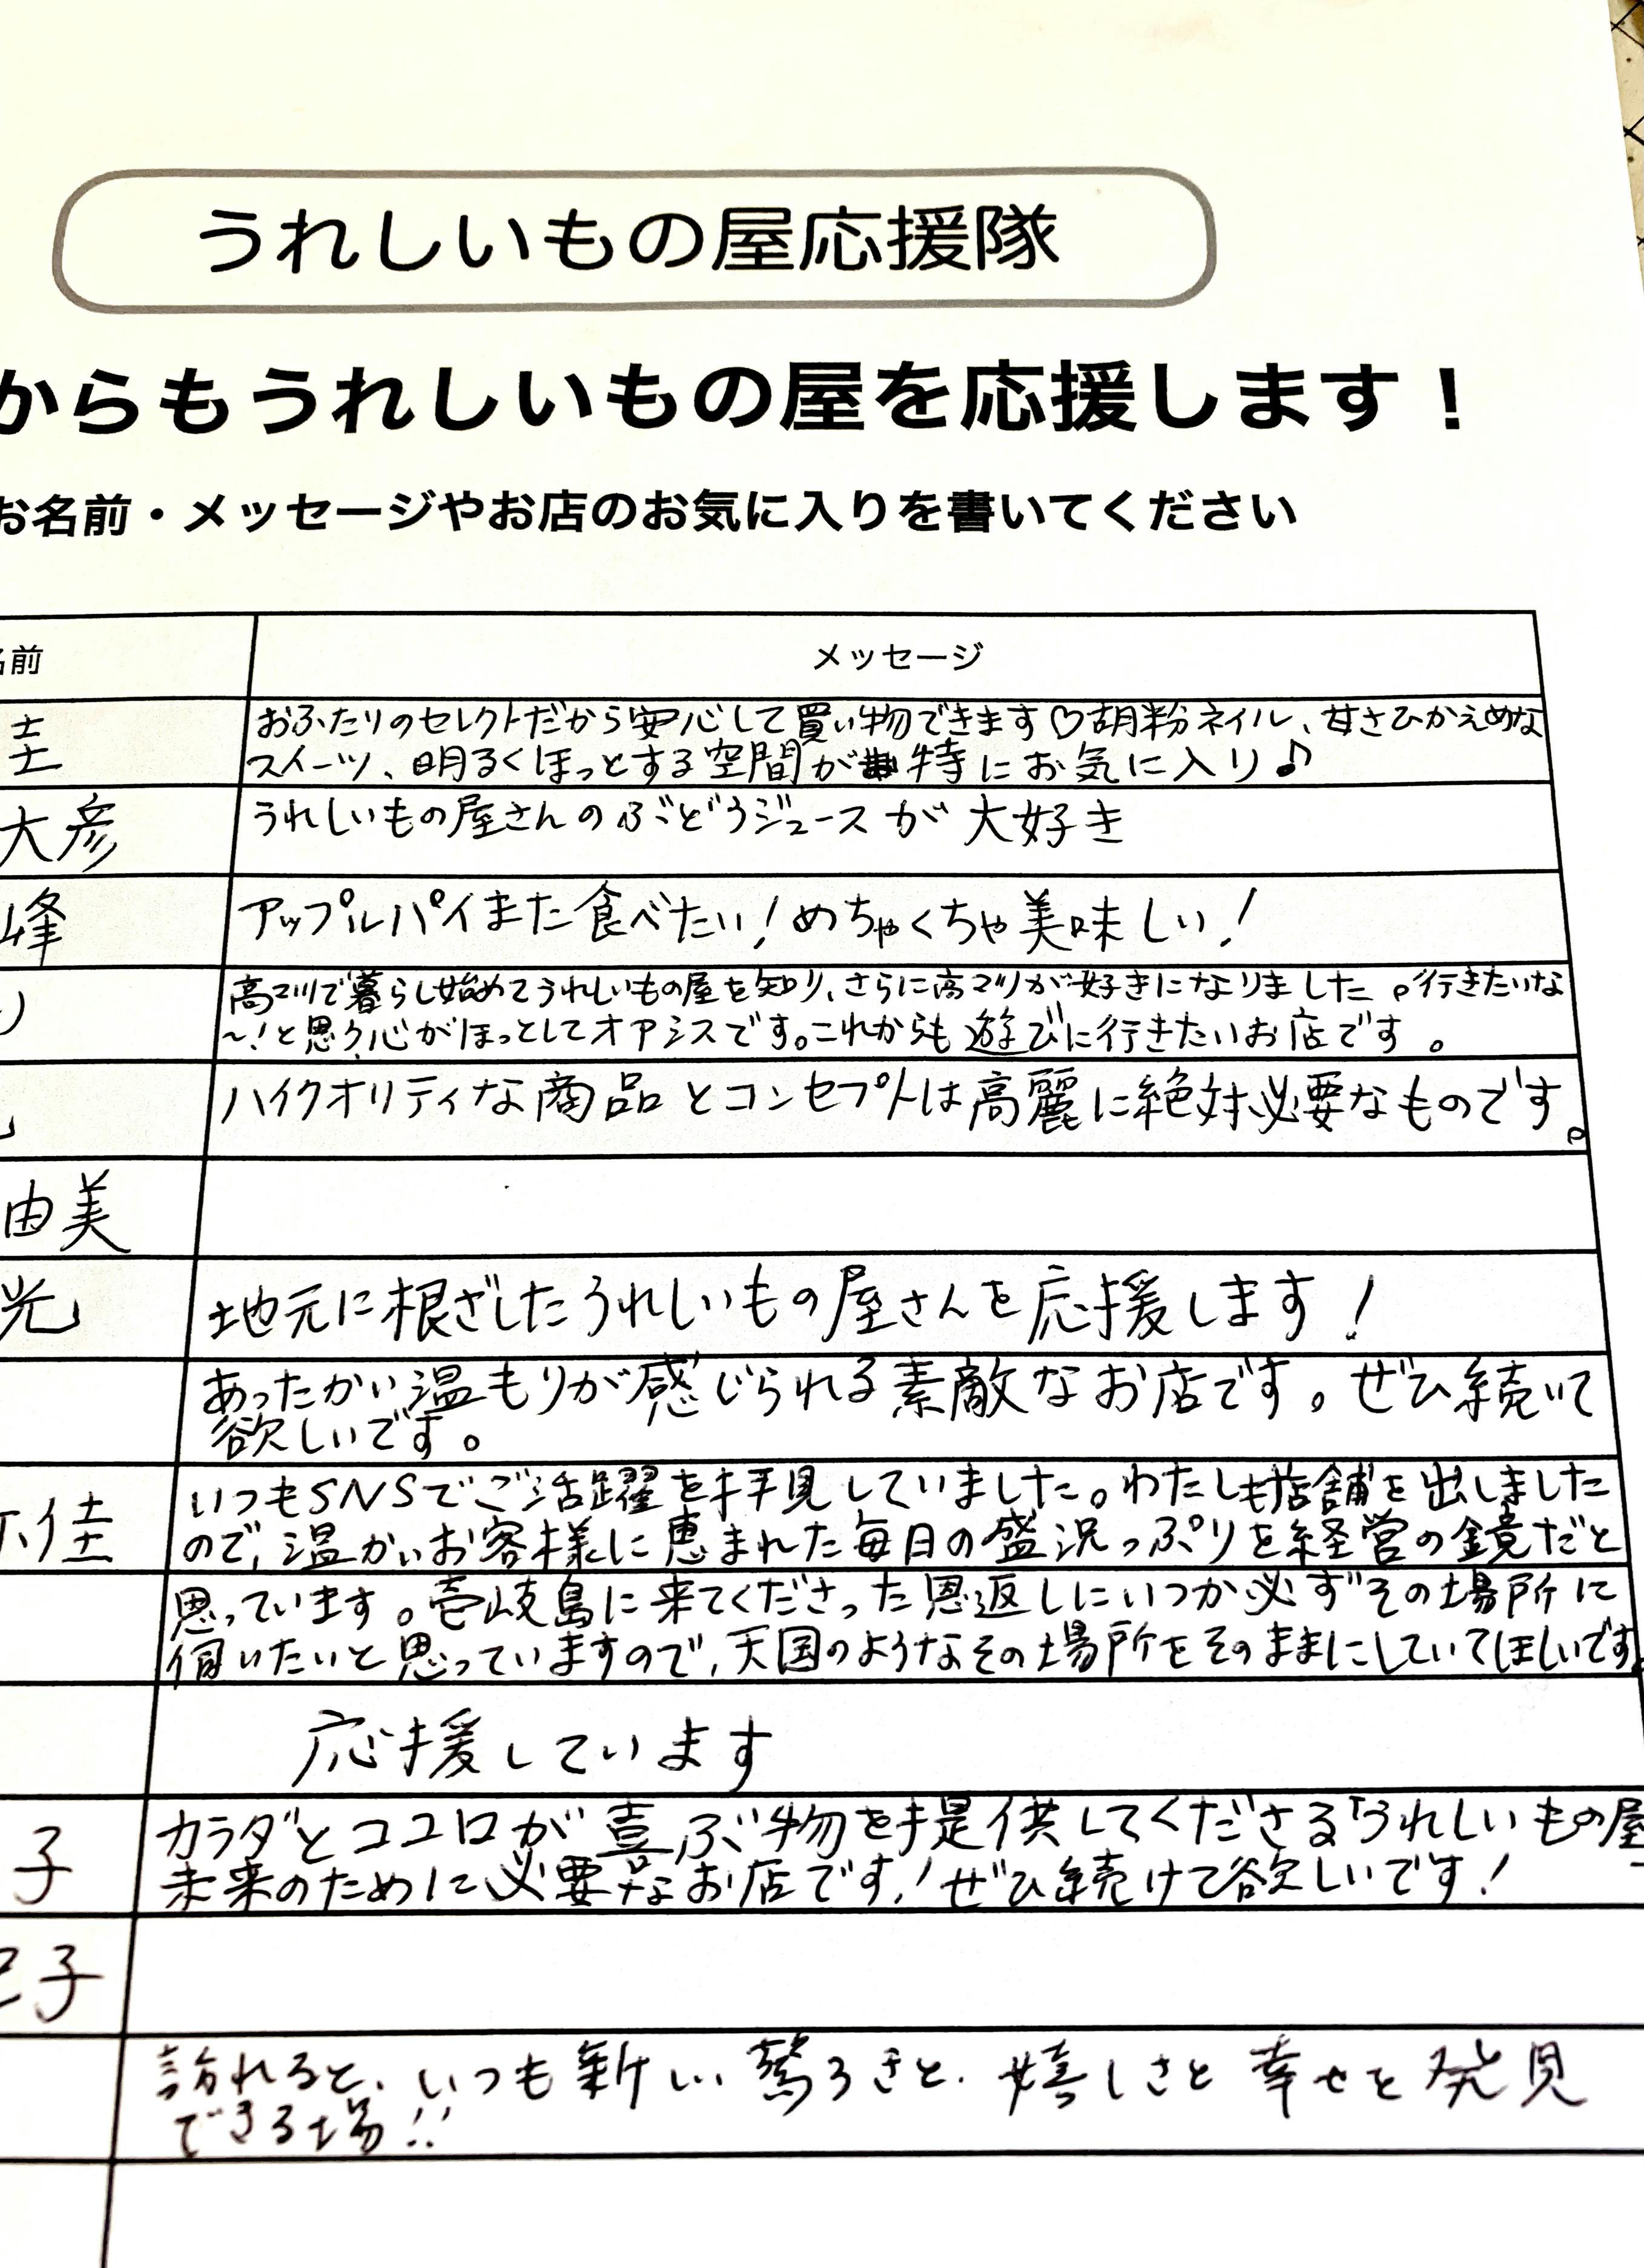 うれしいもの屋応援隊
からもうれしいもの屋を応援します！
お名前・メッセージやお店のお気に入りを書いてください
名前 メッセージ
圭 おふたりのセレクトだから安心して買い物できます♡胡粉ネイル、甘さひかえめな
スイーツ、明るくほっとする空間が特にお気に入り♪
大彦 うれしいもの屋さんのぶどうジュースが大好き
峰 アップルパイまた食べたい！めちゃくちゃ美味しい！
高マツで暮らし始めてうれしいもの屋を知り、さらに高マツが好きになりました。行きたいな
〜！と思う心がほっとしてオアシスです。これからも遊びに行きたいお店です。
ハイクオリティな商品とコンセプトは高麗に絶対必要なものです。
由美
光 地元に根ざしたうれしいもの屋さんを応援します！
あったかい温もりが感じられる素敵なお店です。ぜひ続いて
欲しいです。
佳 いつもSNSでご活躍を拝見していました。わたしも店舗を出しました
ので、温かいお客様に恵まれた毎日の盛況っぷりを経営の鏡だと
思っています。壱岐島に来てくださった恩返しにいつか必ずその場所に
伺いたいと思っていますので、天国のようなその場所をそのままにしていてほしいです。
応援しています
子 カラダとココロが喜ぶ物を提供してくださる「うれしいもの屋」
未来のために必要なお店です！ぜひ続けて欲しいです！
子
訪れると、いつも新しい驚ろきと、嬉しさと幸せを発見
できる場!!